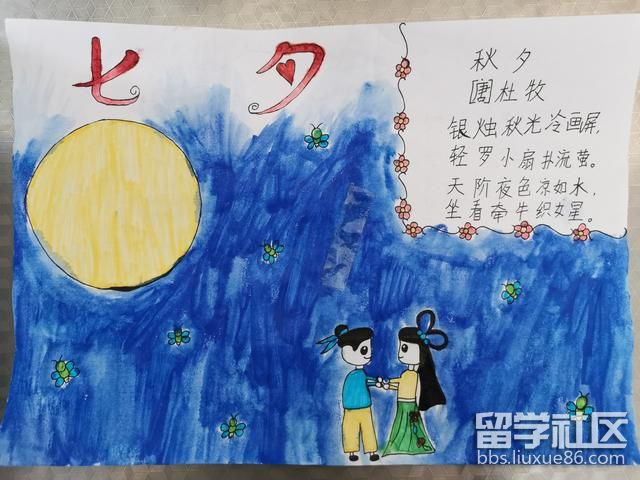 七夕
秋夕
唐杜牧
银烛秋光冷画屏,
轻罗小扇扑流萤。
天阶夜色凉如水,
坐看牵牛织女星。
留学社区
bbs.liuxue86.com